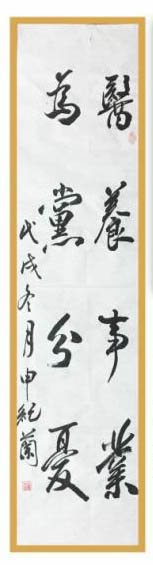 醫養事業
為黨分憂
戊戌冬月申紀蘭